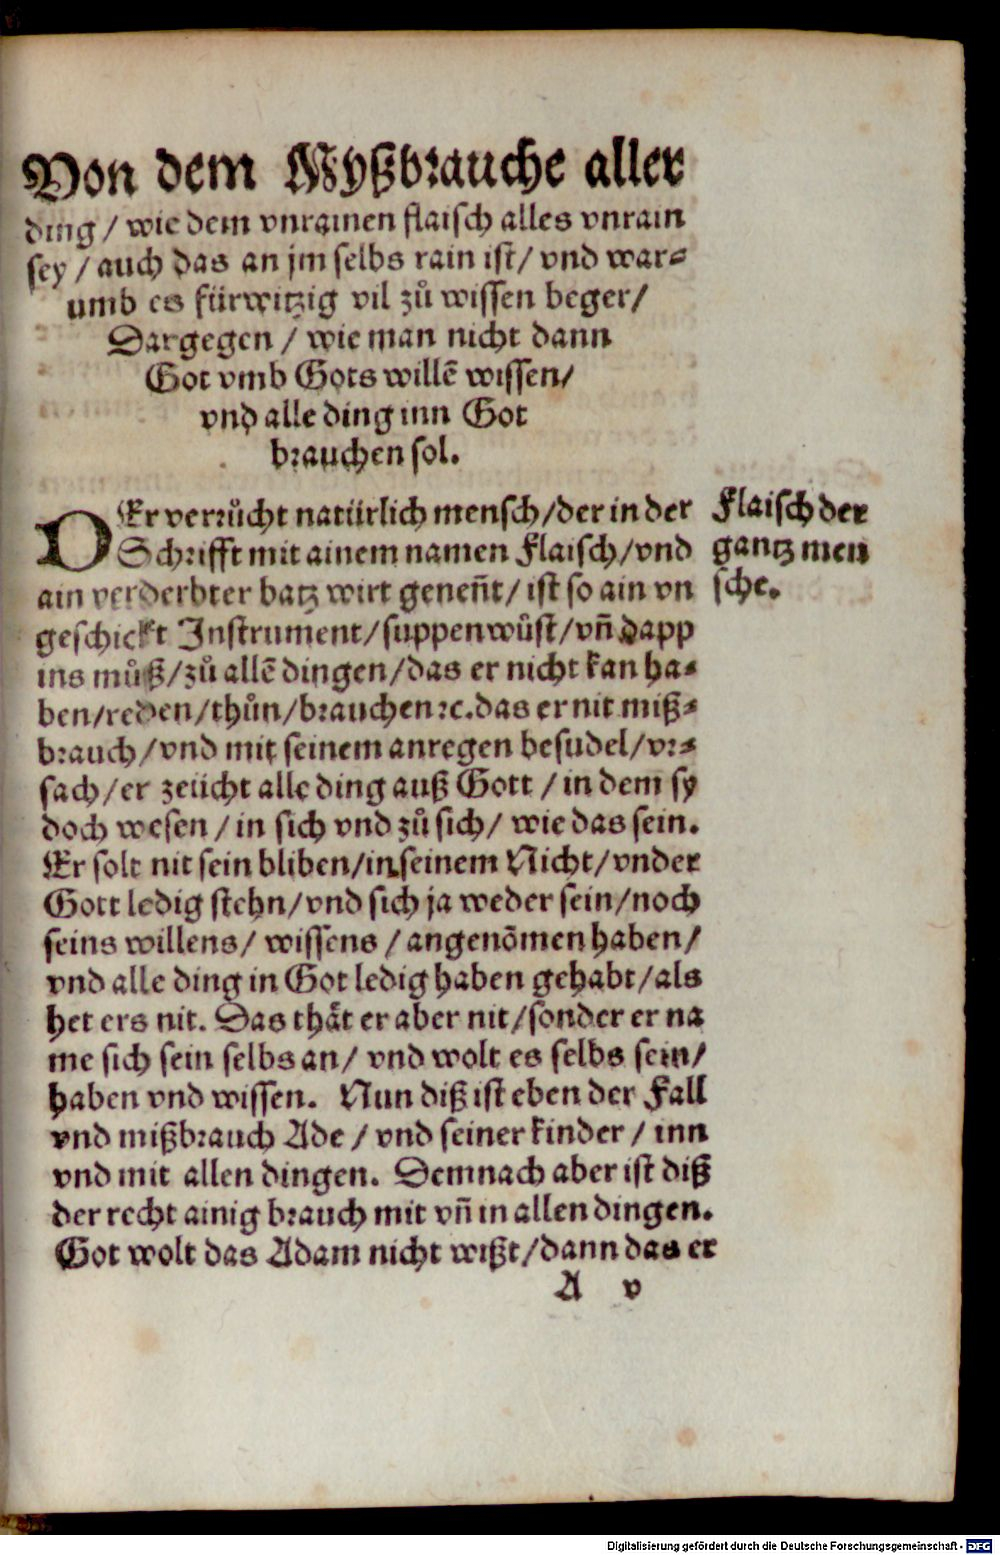 Von dem Myßbrauche aller
ding / wie dem vnrainen flaisch alles vnrain
sey / auch das an jm selbs rain ist / vnd war⸗
umb es fürwitzig vil zů wissen beger /
Dargegen / wie man nicht dann
Got vmb Gots willē wissen /
vnd alle ding inn Got
brauchen sol.
DEr verrůcht natürlich mensch / der in der
Schrifft mit ainem namen Flaisch / vnd
ain verderbter batz wirt geneñt / ist so ain vn
geschickt Instrument / suppenwůst / vñ dapp
ins můß / zů allē dingen / das er nicht kan ha⸗
ben / reden / thůn / brauchen ꝛc. das er nit miß⸗
brauch / vnd mit seinem anregen besudel / vr⸗
sach / er zeücht alle ding auß Gott / in dem sy
doch wesen / in sich vnd zů sich / wie das sein.
Er solt nit sein bliben / in seinem Nicht / vnder
Gott ledig stehn / vnd sich ja weder sein / noch
seins willens / wissens / angenōmen haben /
vnd alle ding in Got ledig haben gehabt / als
het ers nit. Das thåt er aber nit / sonder er na
me sich sein selbs an / vnd wolt es selbs sein /
haben vnd wissen. Nun diß ist eben der Fall
vnd mißbrauch Ade / vnd seiner kinder / inn
vnd mit allen dingen. Demnach aber ist diß
der recht ainig brauch mit vñ in allen dingen.
Got wolt das Adam nicht wißt / dann das er
A v
Flaisch der
gantz men
sche.
Digitalisierung gefördert durch die Deutsche Forschungsgemeinschaft - DFG